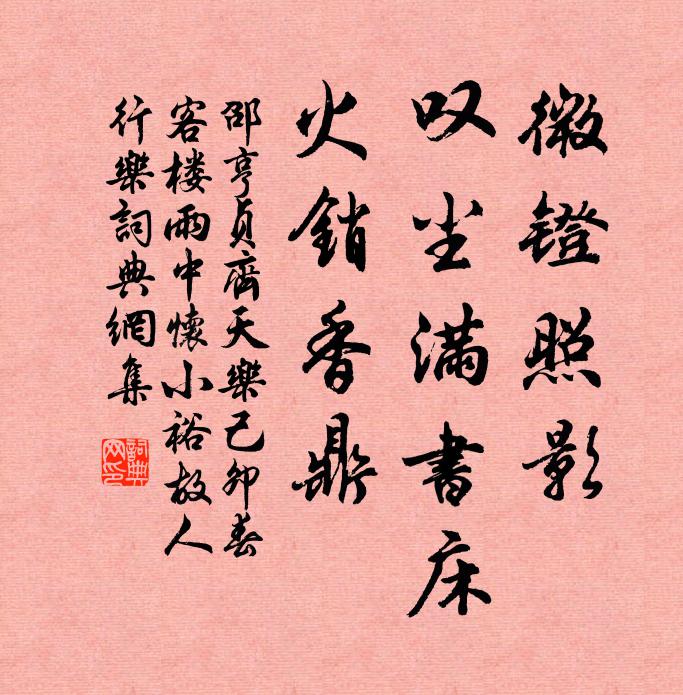 微镫照影
叹尘满书床
火销香鼎
邵亨贞齊天樂己卯春
客楼雨中懷小裕故人
行樂詞典網集
詞典
网印